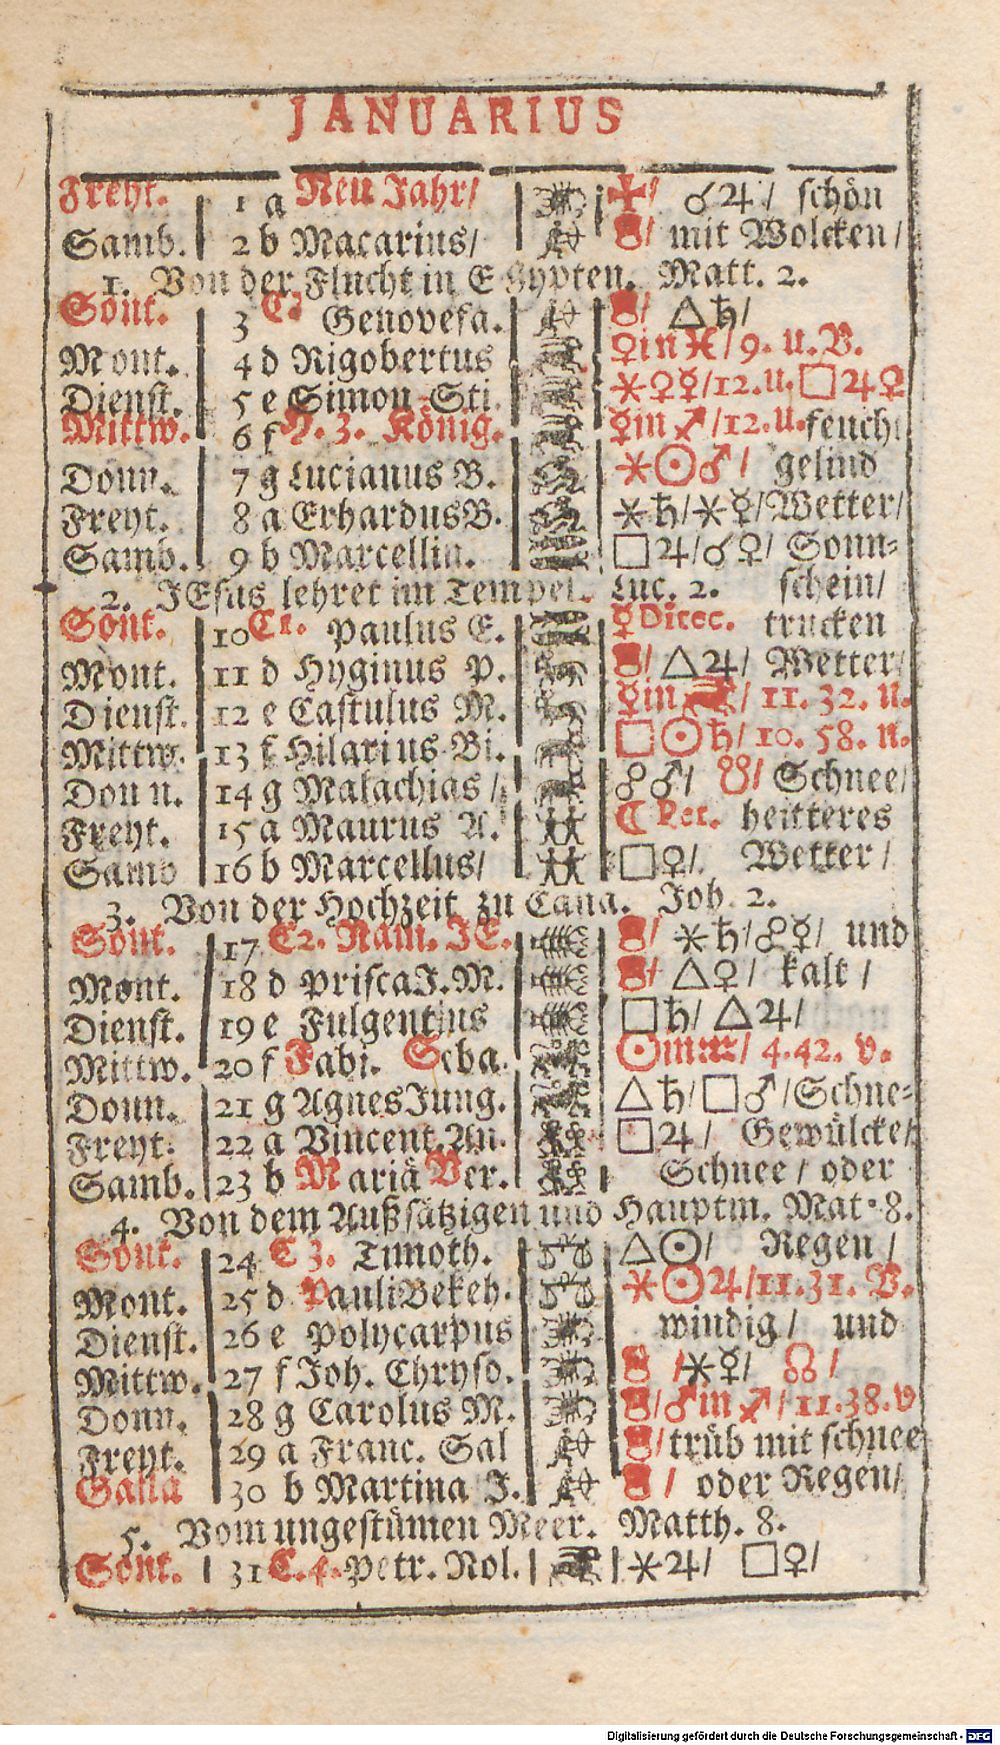 JANUARIUS
Freyt. 1 a Neu Jahr/ ☌♃/ schön
Samb. 2 b Macarius/ mit Wolcken/
1. Von der Flucht in Egypten. Matt. 2.
Sont. 3 C. Genovefa. △♄/
Mont. 4 d Rigobertus ♀in♓/9. U.V.
Dienst. 5 e Simon Sti ⚹♀☿/12.U.□♃♀
Mittw. 6 f H. 3. König. ☿in♐/12.U.feucht
Donn. 7 g Lucianus B. ⚹☉♂/ gelind
Freyt. 8 a ErhardusB. ⚹♄/⚹☿/Wetter/
Samb. 9 b Marcellin. □♃/☌♀/ Sonn-
2. JEsus lehret im Tempel. Luc. 2. schein/
Sont. 10 C1. Paulus E. ☿Direc. trucken
Mont. 11 d Hyginus P. △♃/ Wetter/
Dienst. 12 e Castulus M. ☿in♑/ 11. 32. U.
Mittw. 13 f Hilarius Bi. □☉♄/10. 58. N.
Donn. 14 g Malachias/ ☍♂/ ☋/ Schnee/
Freyt. 15 a Maurus A. ☾Per. heitteres
Samb 16 b Marcellus/ □♀/ Wetter/
3. Von der Hochzeit zu Cana. Joh. 2.
Sont. 17 C2. Nam. JE. ⚹♄/☍☿/ und
Mont. 18 d PriscaJ.M. △♀/ kalt/
Dienst. 19 e Fulgentius □♄/ △♃/
Mittw. 20 f Fabi. Seba. ☉in♒/ 4.42. V.
Donn. 21 g AgnesJung. △♄/□♂/Schne-
Freyt. 22 a Vincent.An. □♃/ Gewülcke/
Samb. 23 b Mariä Ver. Schnee/ oder
4. Von dem Außsätzigen und Hauptm. Mat. 8.
Sont. 24 C 3. Timoth. △☉/ Regen/
Mont. 25 d PauliBekeh. ⚹☉♃/11.31. V.
Dienst. 26 e Polycarpus windig/ und
Mittw. 27 f Joh. Chryso. /⚹☿/ ☊/
Donn. 28 g Carolus M. /♂in♐/11.38.V
Freyt. 29 a Franc. Sal /trüb mit schnee
Samb 30 b Martina J. / oder Regen/
5. Vom ungestümen Meer. Matth. 8.
Sont. 31 C.4. Petr. Nol. ⚹♃/ □♀/
Digitalisierung gefördert durch die Deutsche Forschungsgemeinschaft - DFG